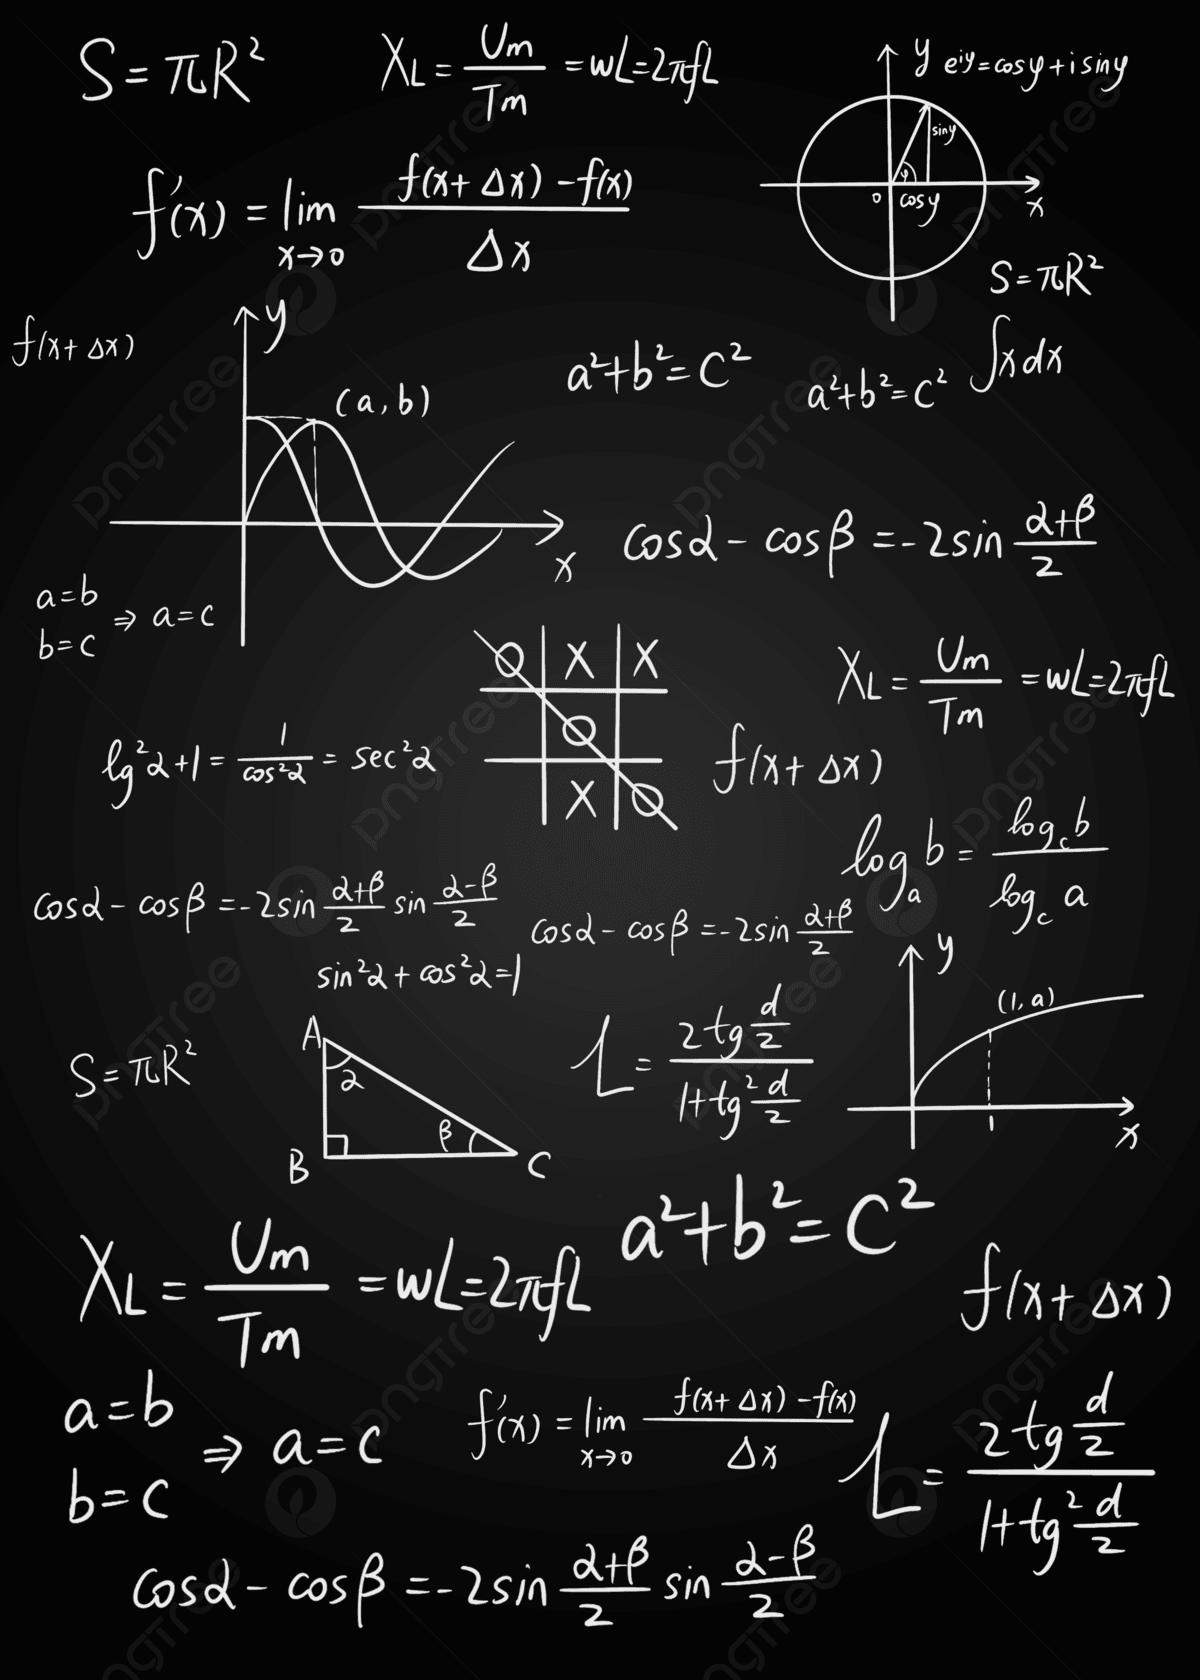 S = πR²
X_L = Um/Tm = wL = 2πfL
y e^iy = cosy + i siny
siny
φ
0 cosy
x
f'(x) = lim x→0 f(x + Δx) - f(x) / Δx
S = πR²
f(x + Δx)
y
(a, b)
x
a² + b² = c²
a² + b² = c²
∫x dx
cosα - cosβ = -2sin α+β/2
a = b
b = c
⇒ a = c
O X X
O
X O
X_L = Um/Tm = wL = 2πfL
lg²α + 1 = 1/cos²α = sec²α
f(x + Δx)
log_a b = log_c b / log_c a
cosα - cosβ = -2sin α+β/2 sin α-β/2
cosα - cosβ = -2sin α+β/2
sin²α + cos²α = 1
y
(1, a)
1
x
S = πR²
A
α
β
B
C
L = 2tg d/2 / 1+tg² d/2
a² + b² = c²
X_L = Um/Tm = wL = 2πfL
f(x + Δx)
a = b
b = c
⇒ a = c
f'(x) = lim x→0 f(x + Δx) - f(x) / Δx
L = 2tg d/2 / 1+tg² d/2
cosα - cosβ = -2sin α+β/2 sin α-β/2
pngtree